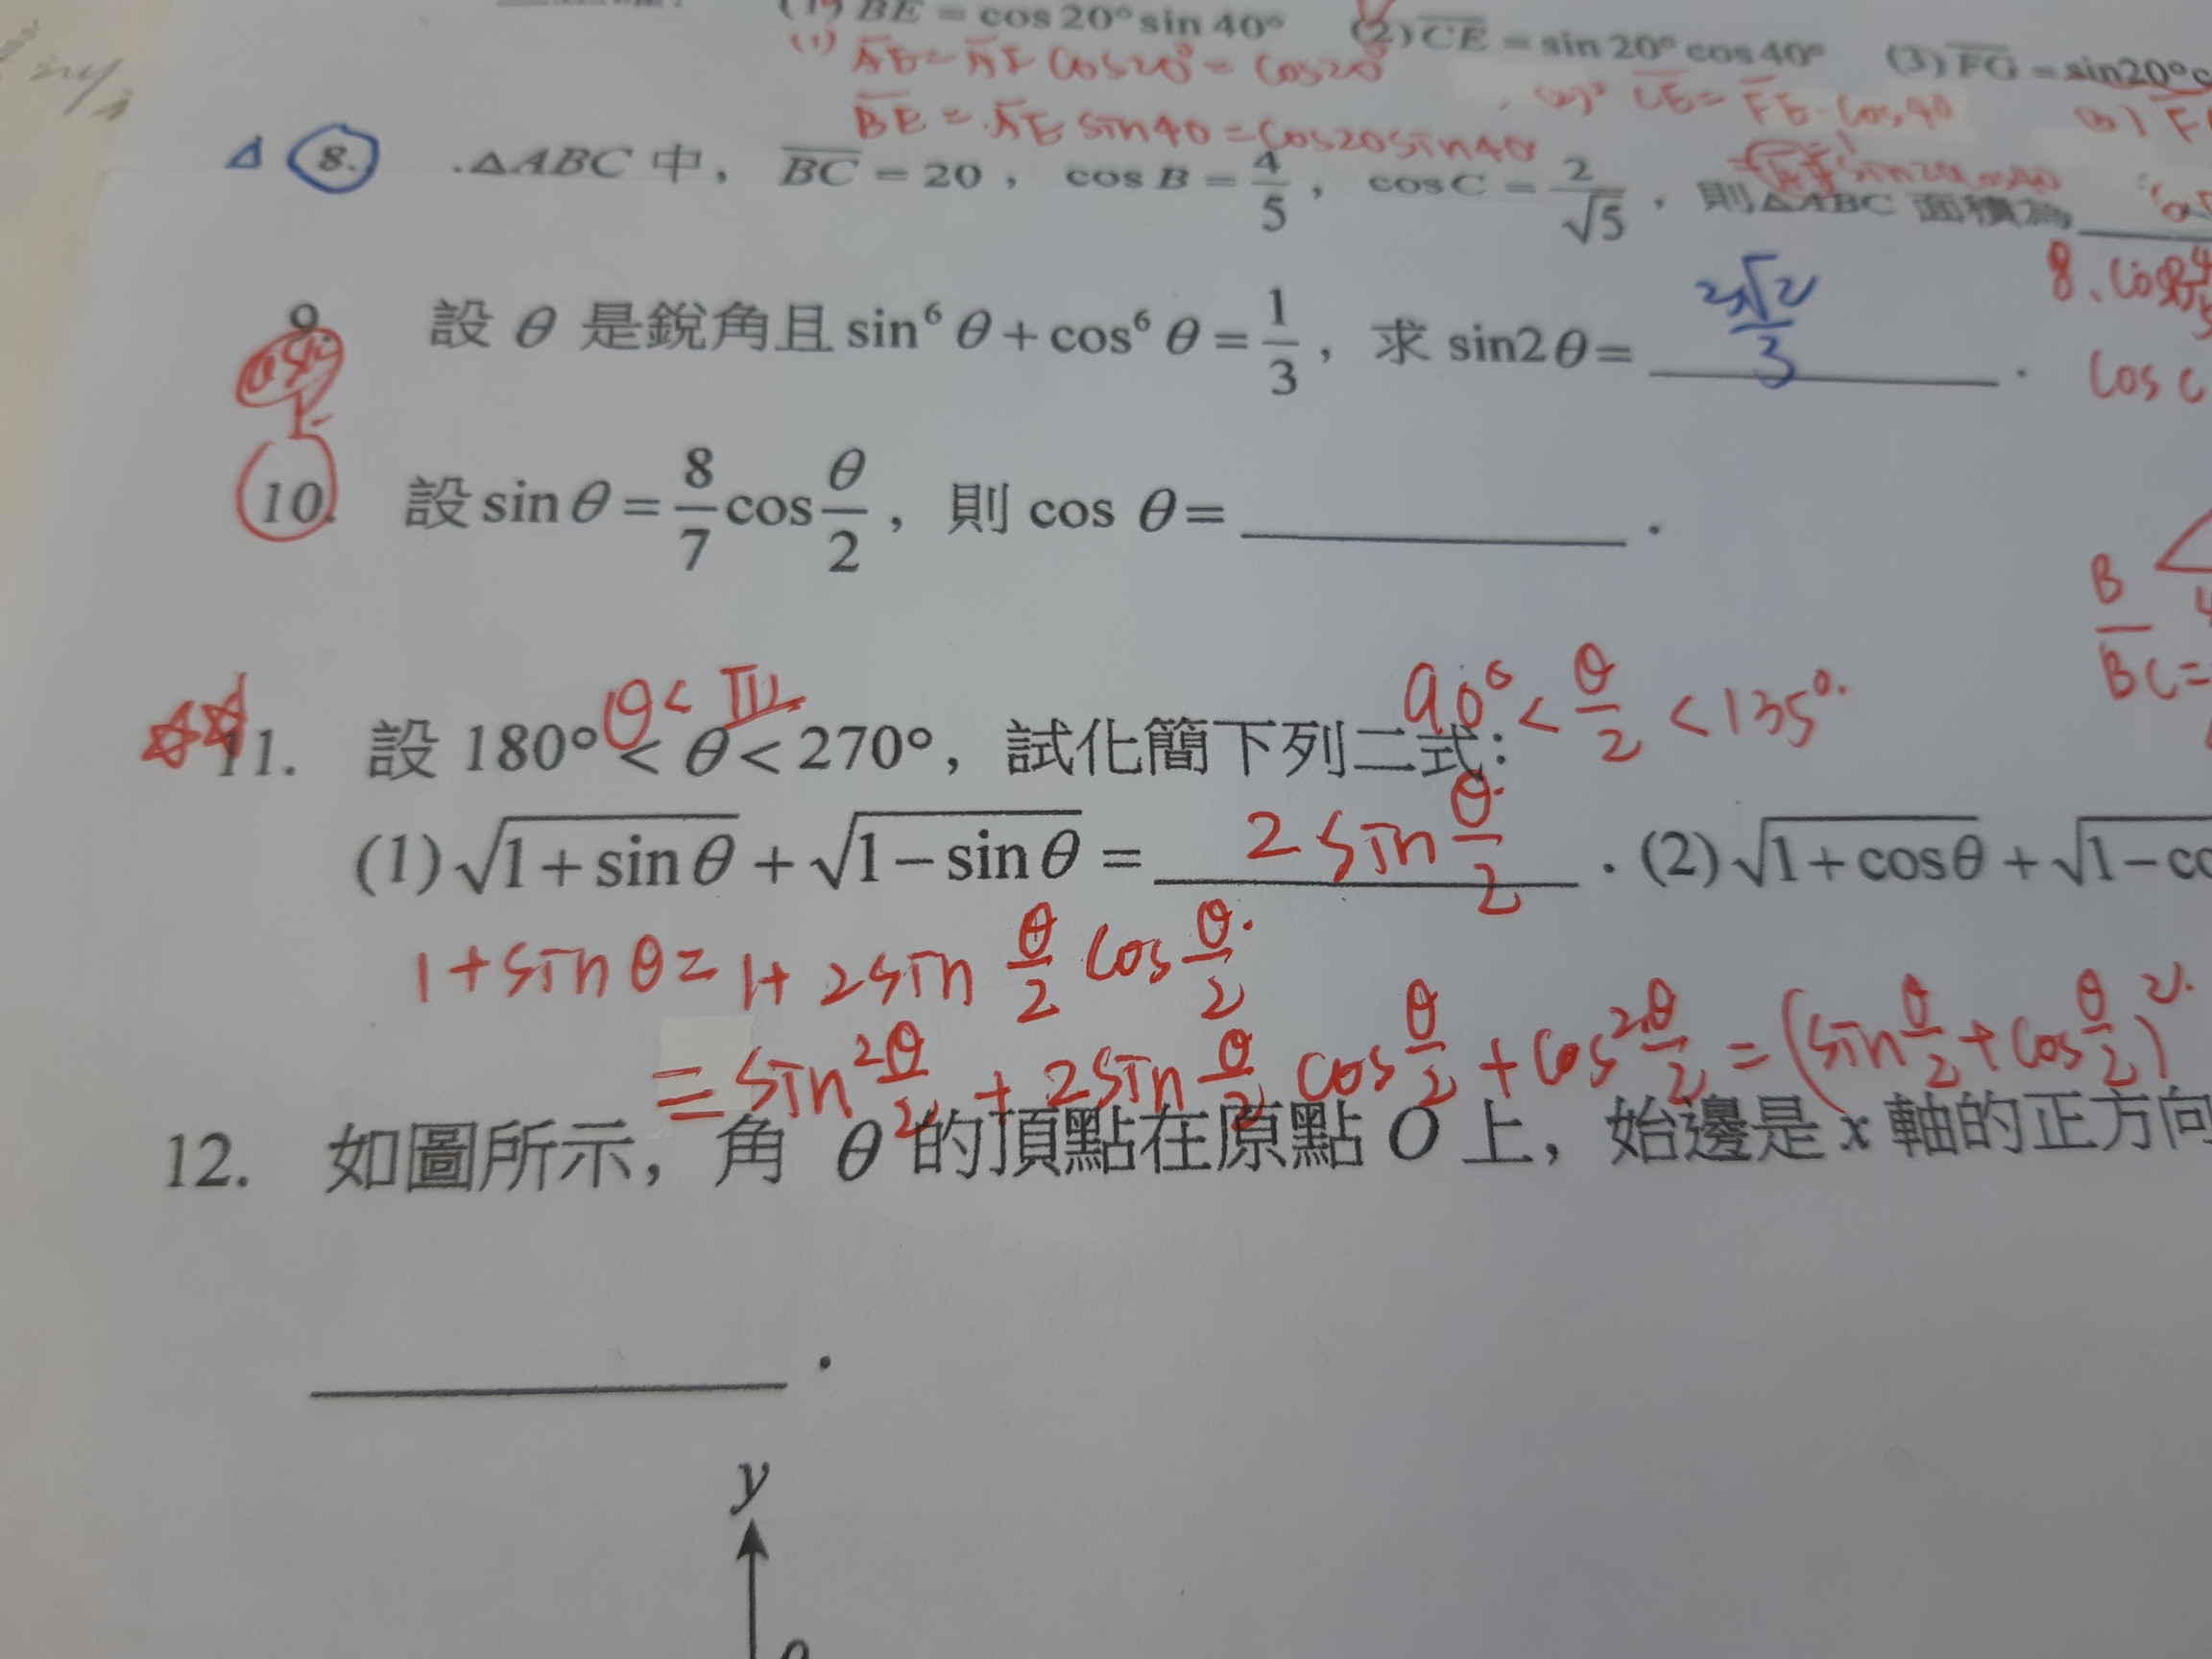 (1) BE = cos 20° sin 40° (2) CE = sin 20° cos 40° (3) FG = sin20°c
(1) AE = AF cos20° = cos20° (2) CE = FE · cos40
BE = AE sin40 = cos20sin40
8. △ABC 中，BC = 20，cos B = 4/5，cos C = 2/√5，則△ABC 面積為
8、cosB
cos C
9. 設 θ 是銳角且 sin⁶ θ + cos⁶ θ = 1/3，求 sin2θ = 2√2/3 .
10. 設 sin θ = 8/7 cos θ/2，則 cos θ = .
B
BC =
90° < θ/2 < 135°.
11. 設 180° < θ < 270°，試化簡下列二式：
(1) √1+sin θ + √1−sin θ = 2 sin θ/2 . (2) √1+cosθ + √1−co
1 + sin θ = 1 + 2sin θ/2 cos θ/2
= sin² θ/2 + 2sin θ/2 cos θ/2 + cos² θ/2 = (sin θ/2 + cos θ/2)²
12. 如圖所示，角 θ 的頂點在原點 O 上，始邊是 x 軸的正方向
.
y